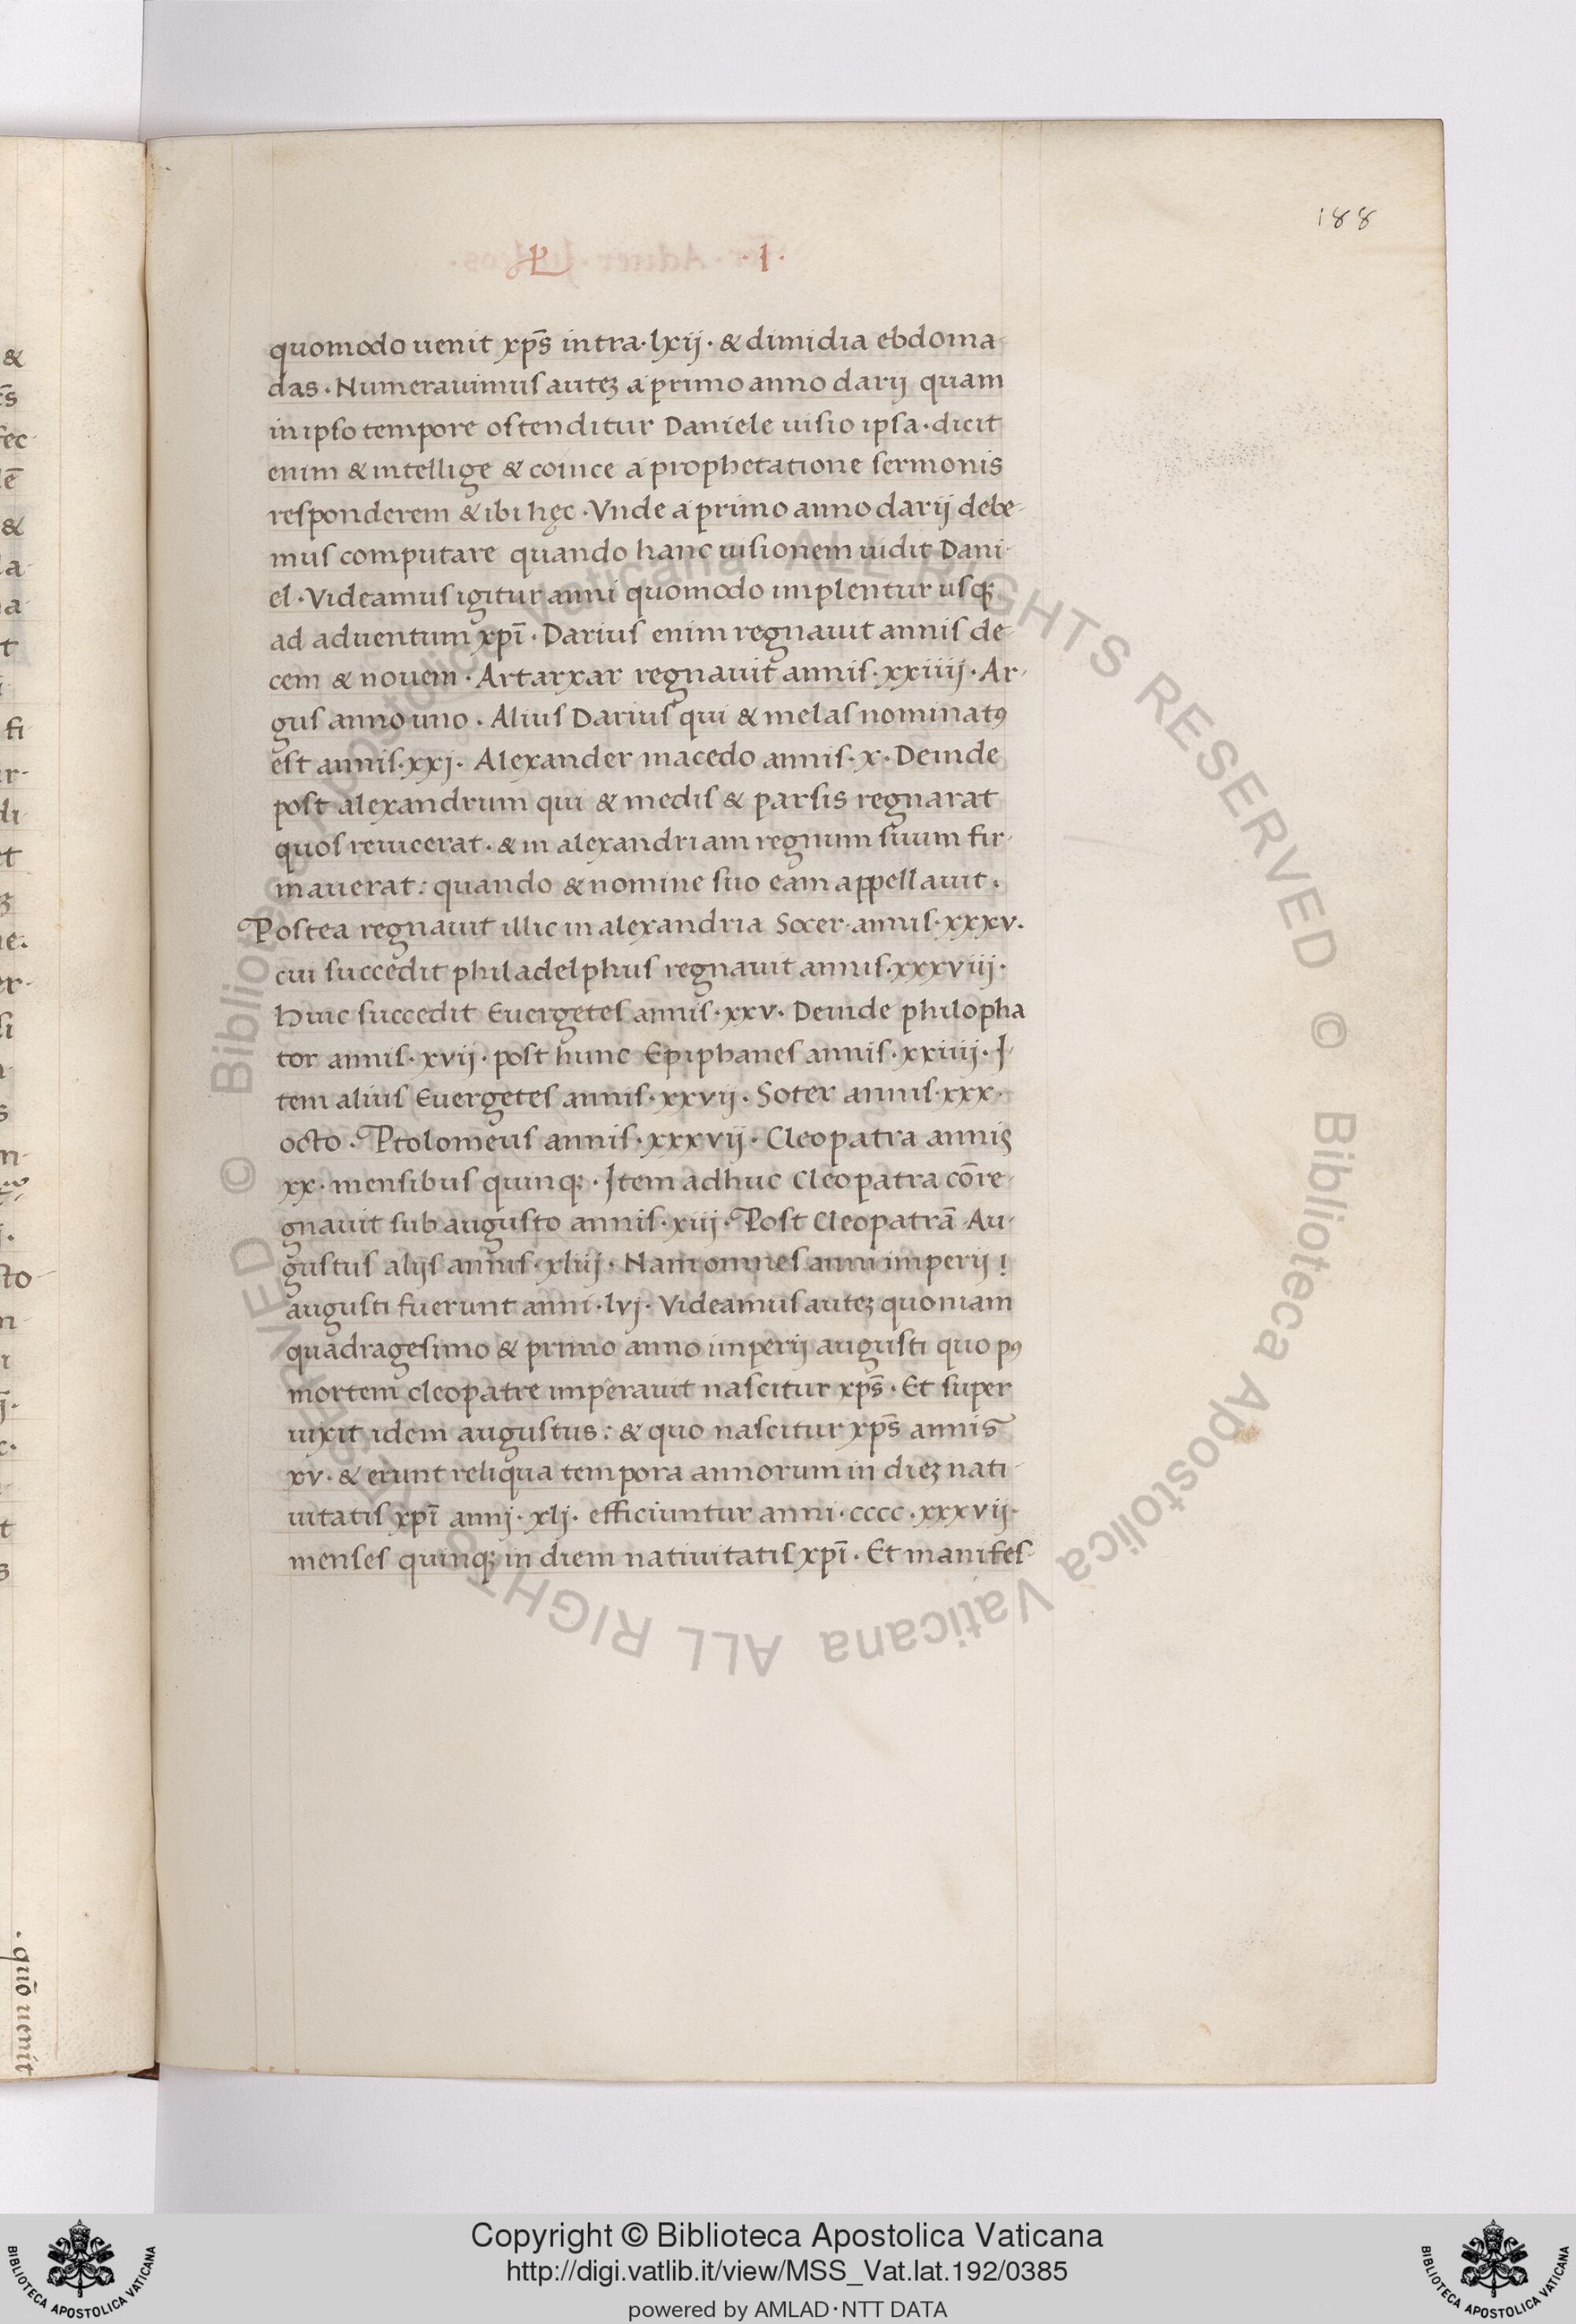 188
L · I ·
quomodo uenit xp̄s intra · lxij · & dimidia ebdoma-
das · Numerauimus autꝫ a primo anno darij quam
in ipso tempore ostenditur Daniele uisio ipsa · dicit
enim & intellige & coiuce a prophetatione sermonis
responderem & ibi hęc · Vnde a primo anno darij debe-
mus computare quando hanc uisionem uidit Dani-
el · Videamus igitur anni quomodo implentur usqꝫ
ad aduentum xpī · Darius enim regnauit annis de-
cem & nouem · Artarxar regnauit annis · xxiiij · Ar-
gus anno uno · Alius Darius qui & melas nominatꝰ
est annis · xxj · Alexander macedo annis · x · Deinde
post alexandrum qui & medis & parsis regnarat
quos reuicerat · & in alexandriam regnum suum fir-
mauerat : quando & nomine suo eam appellauit .
Postea regnauit illic in alexandria Socer · annis · xxxv .
cui succedit philadelphus regnauit annis · xxxviij ·
Huic succedit Euergetes annis · xxv · Deinde philopha
tor annis · xvij · post hunc Epiphanes annis · xxiiij · I-
tem alius Euergetes annis · xxvij · Soter annis · xxx ·
octo · Ptolomeus annis · xxxvij · Cleopatra annis
xx · mensibus quinqꝫ · Item adhuc Cleopatra cōre-
gnauit sub augusto annis · xiij · Post Cleopatrā Au-
gustus alijs annis · xliij · Nam omnes anni imperij !
augusti fuerunt anni · lvj · Videamus autꝫ quoniam
quadragesimo & primo anno imperij augusti quo pꝰ
mortem cleopatre imperauit nascitur xp̄s · Et super
uixit idem augustus : & quo nascitur xp̄s annis
xv · & erunt reliqua tempora annorum in dieꝫ nati-
uitatis xpī annj · xlj · efficiuntur anni · cccc · xxxvij ·
menses quinqꝫ in diem natiuitatis xpī · Et manifes-
· quō uenit
© Biblioteca Apostolica Vaticana ALL RIGHTS RESERVED © Biblioteca Apostolica Vaticana ALL RIGHTS RESERVED
Copyright © Biblioteca Apostolica Vaticana
http://digi.vatlib.it/view/MSS_Vat.lat.192/0385
powered by AMLAD·NTT DATA
BIBLIOTECA APOSTOLICA VATICANA
BIBLIOTECA APOSTOLICA VATICANA